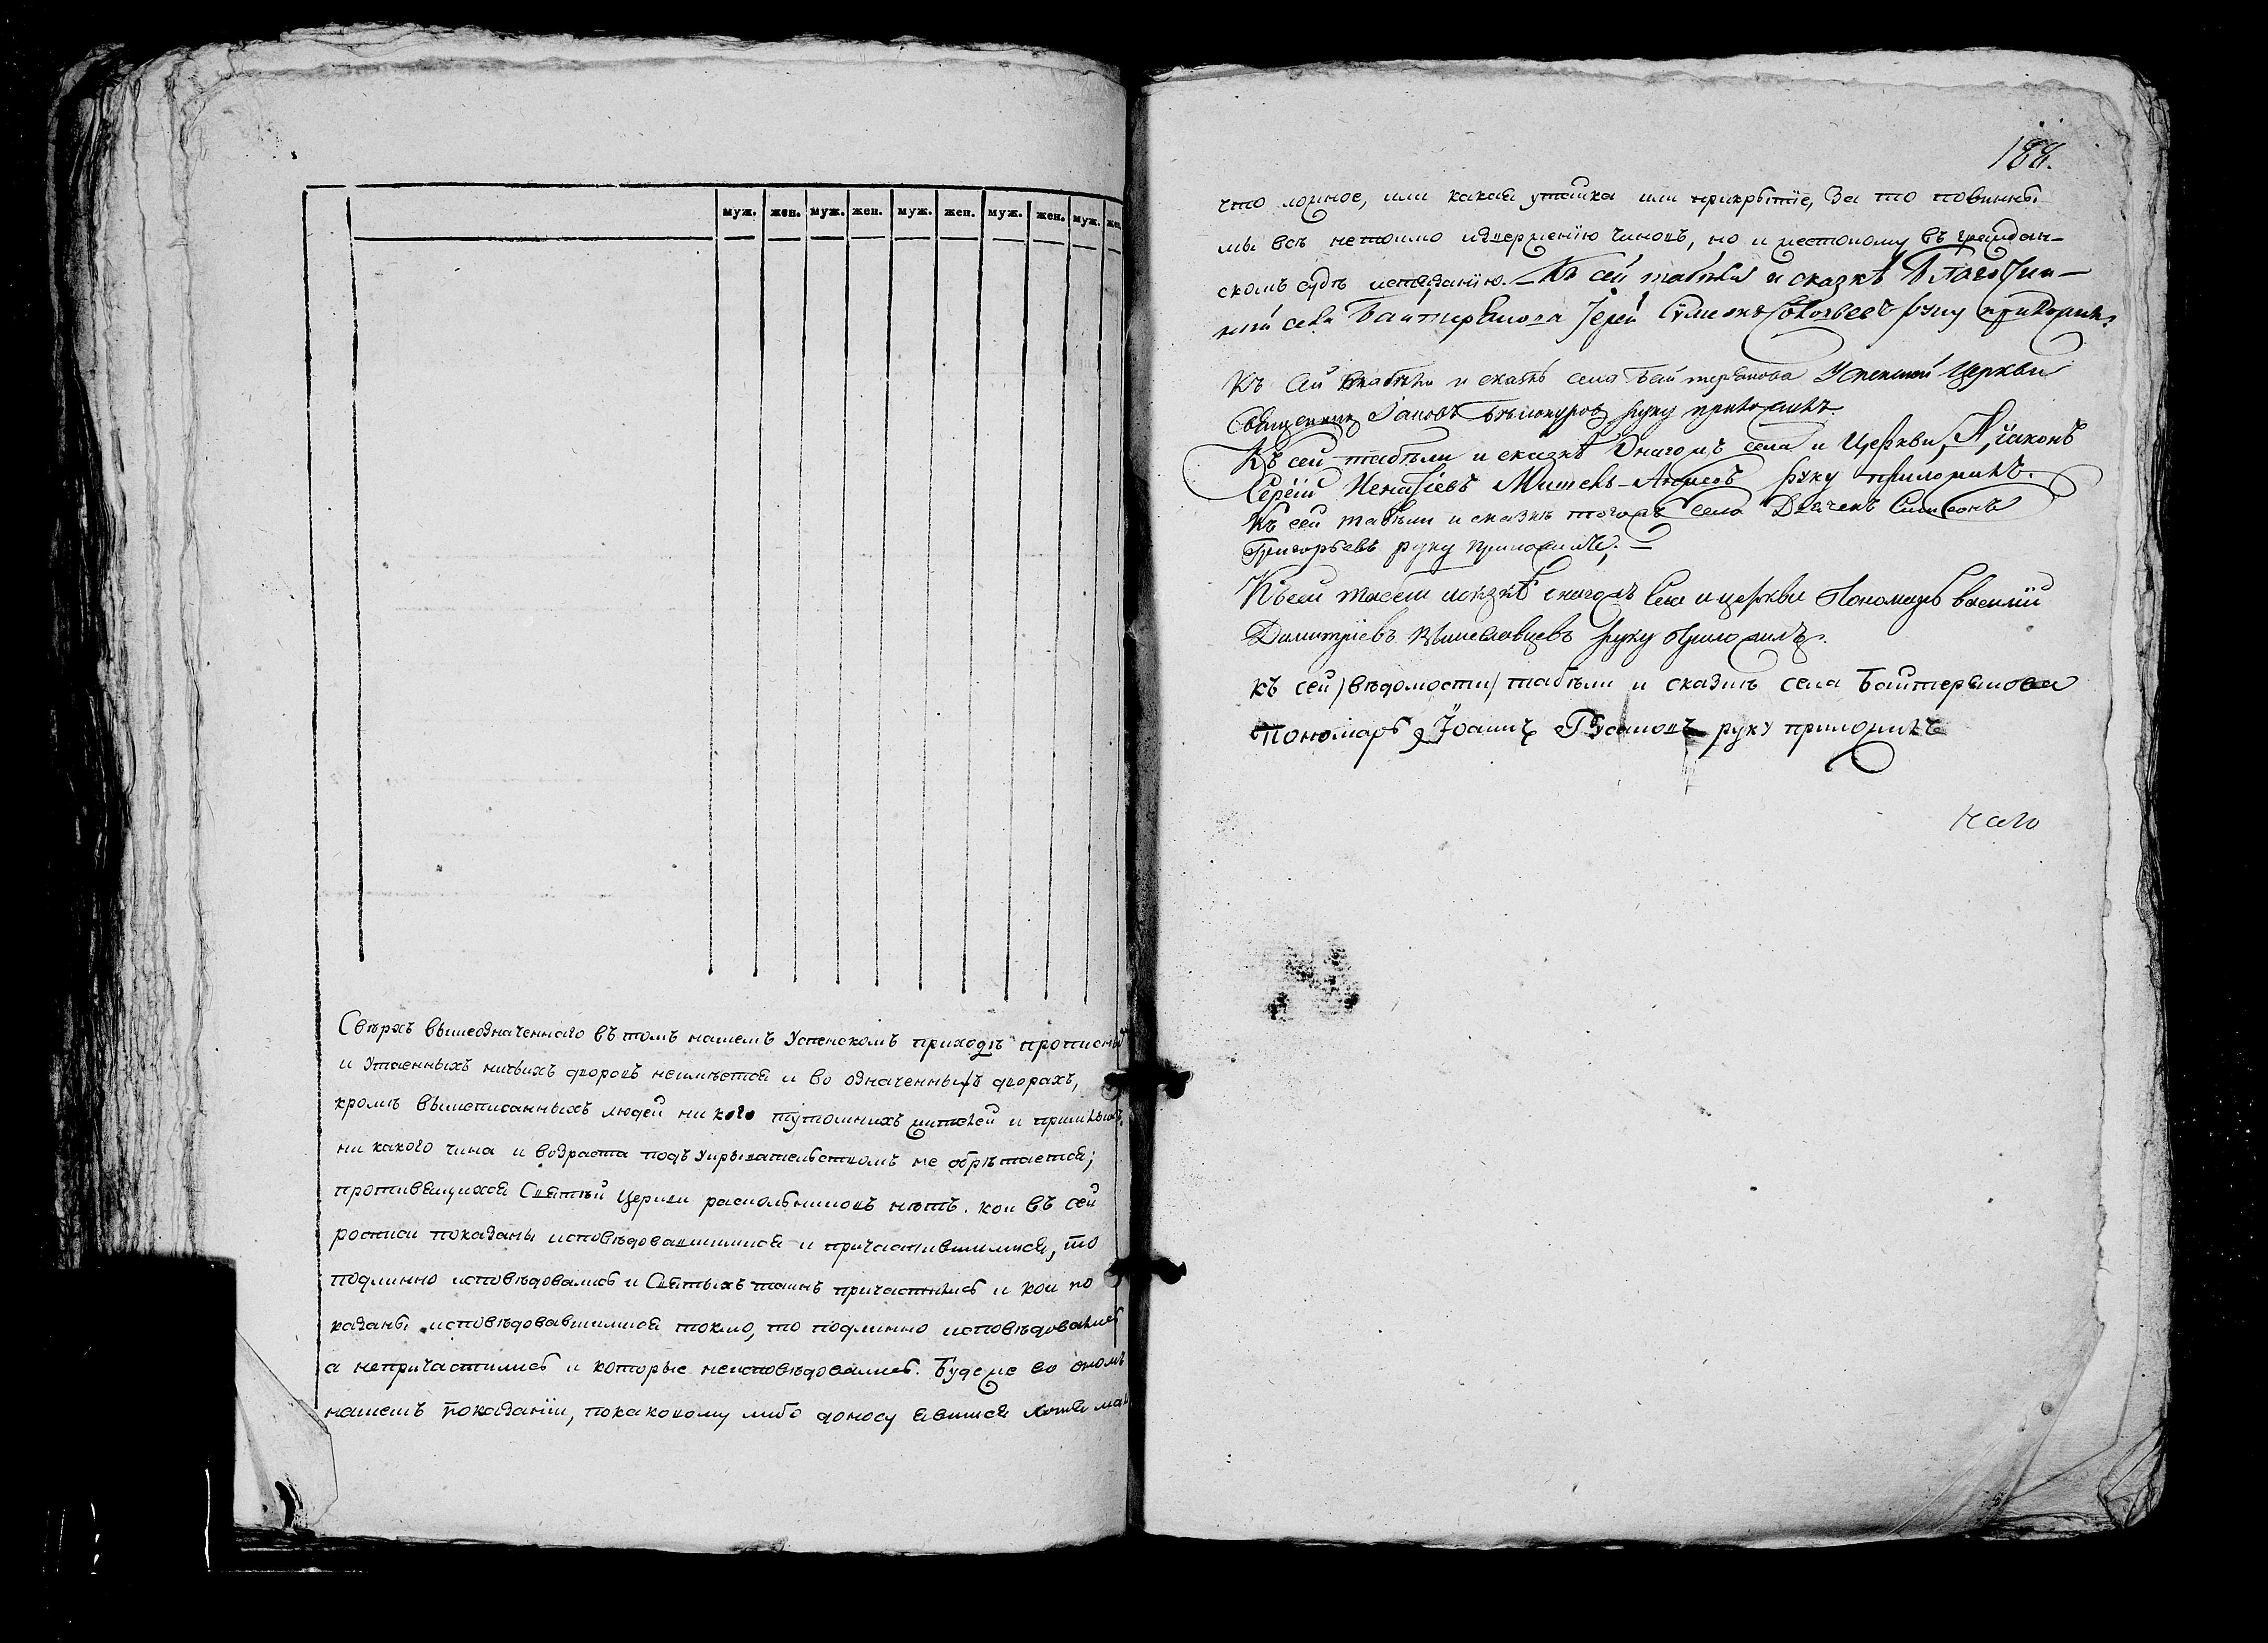 муж. жен. муж. жен. муж. жен. муж. жен. муж. жен.
Сверхъ вышеозначеннаго въ томъ нашемъ Успенскомъ приходѣ прописныхъ
и утаенныхъ ничьихъ дворовъ неимѣется и во означенныхъ дворахъ,
кромѣ вышеписанныхъ людей ни кого тутошнихъ жителей и пришлыхъ
ни какого чина и возраста подъ укрывательствомъ не обрѣтается;
противящихся Святѣй Церкви раскольниковъ нѣтъ. кои въ сей
росписи показаны исповѣдовавшимися и причастившимися, то
подлинно исповѣдовались и Святыхъ таинъ причастились и кои по
казаны исповѣдовавшимися токмо, то подлинно исповѣдовались
а непричастились и которые неисповѣдовались. Буде же во ономъ
нашемъ показаніи, покаковому либо доносу явится хотя мал
188.
что ложное, или какая утайка или прикрытіе, За то повинны
мы всѣ нетокмо изверженію чиновъ, но и жестокому въ граждан-
скомъ судѣ истязанію. – Къ сей табели и сказкѣ Благочин-
ный села Байтерякова Іерей Сѵмеонъ Соловьевъ руку приложилъ.
Къ сей табѣли и сказкѣ села Байтерякова Успенской Церкви
Священникъ Іаковъ Бѣлокуровъ руку приложилъ.
Къ сей табѣли и сказкѣ Оногожъ села и Церкви Діаконъ
Сергій руку приложилъ.
Къ сей табѣли и сказкѣ тогожъ села Дьячекъ Симеонъ
Григорьевъ руку приложилъ. –
Къ сей табели исказкѣ оногожъ села ицеркви Пономарь Василій
Димитріевъ Вышеславцевъ руку приложилъ.
къ сей /вѣдомости/ табѣли и сказкѣ села Байтерякова
Пономарь Іоаннъ Русановъ руку приложилъ